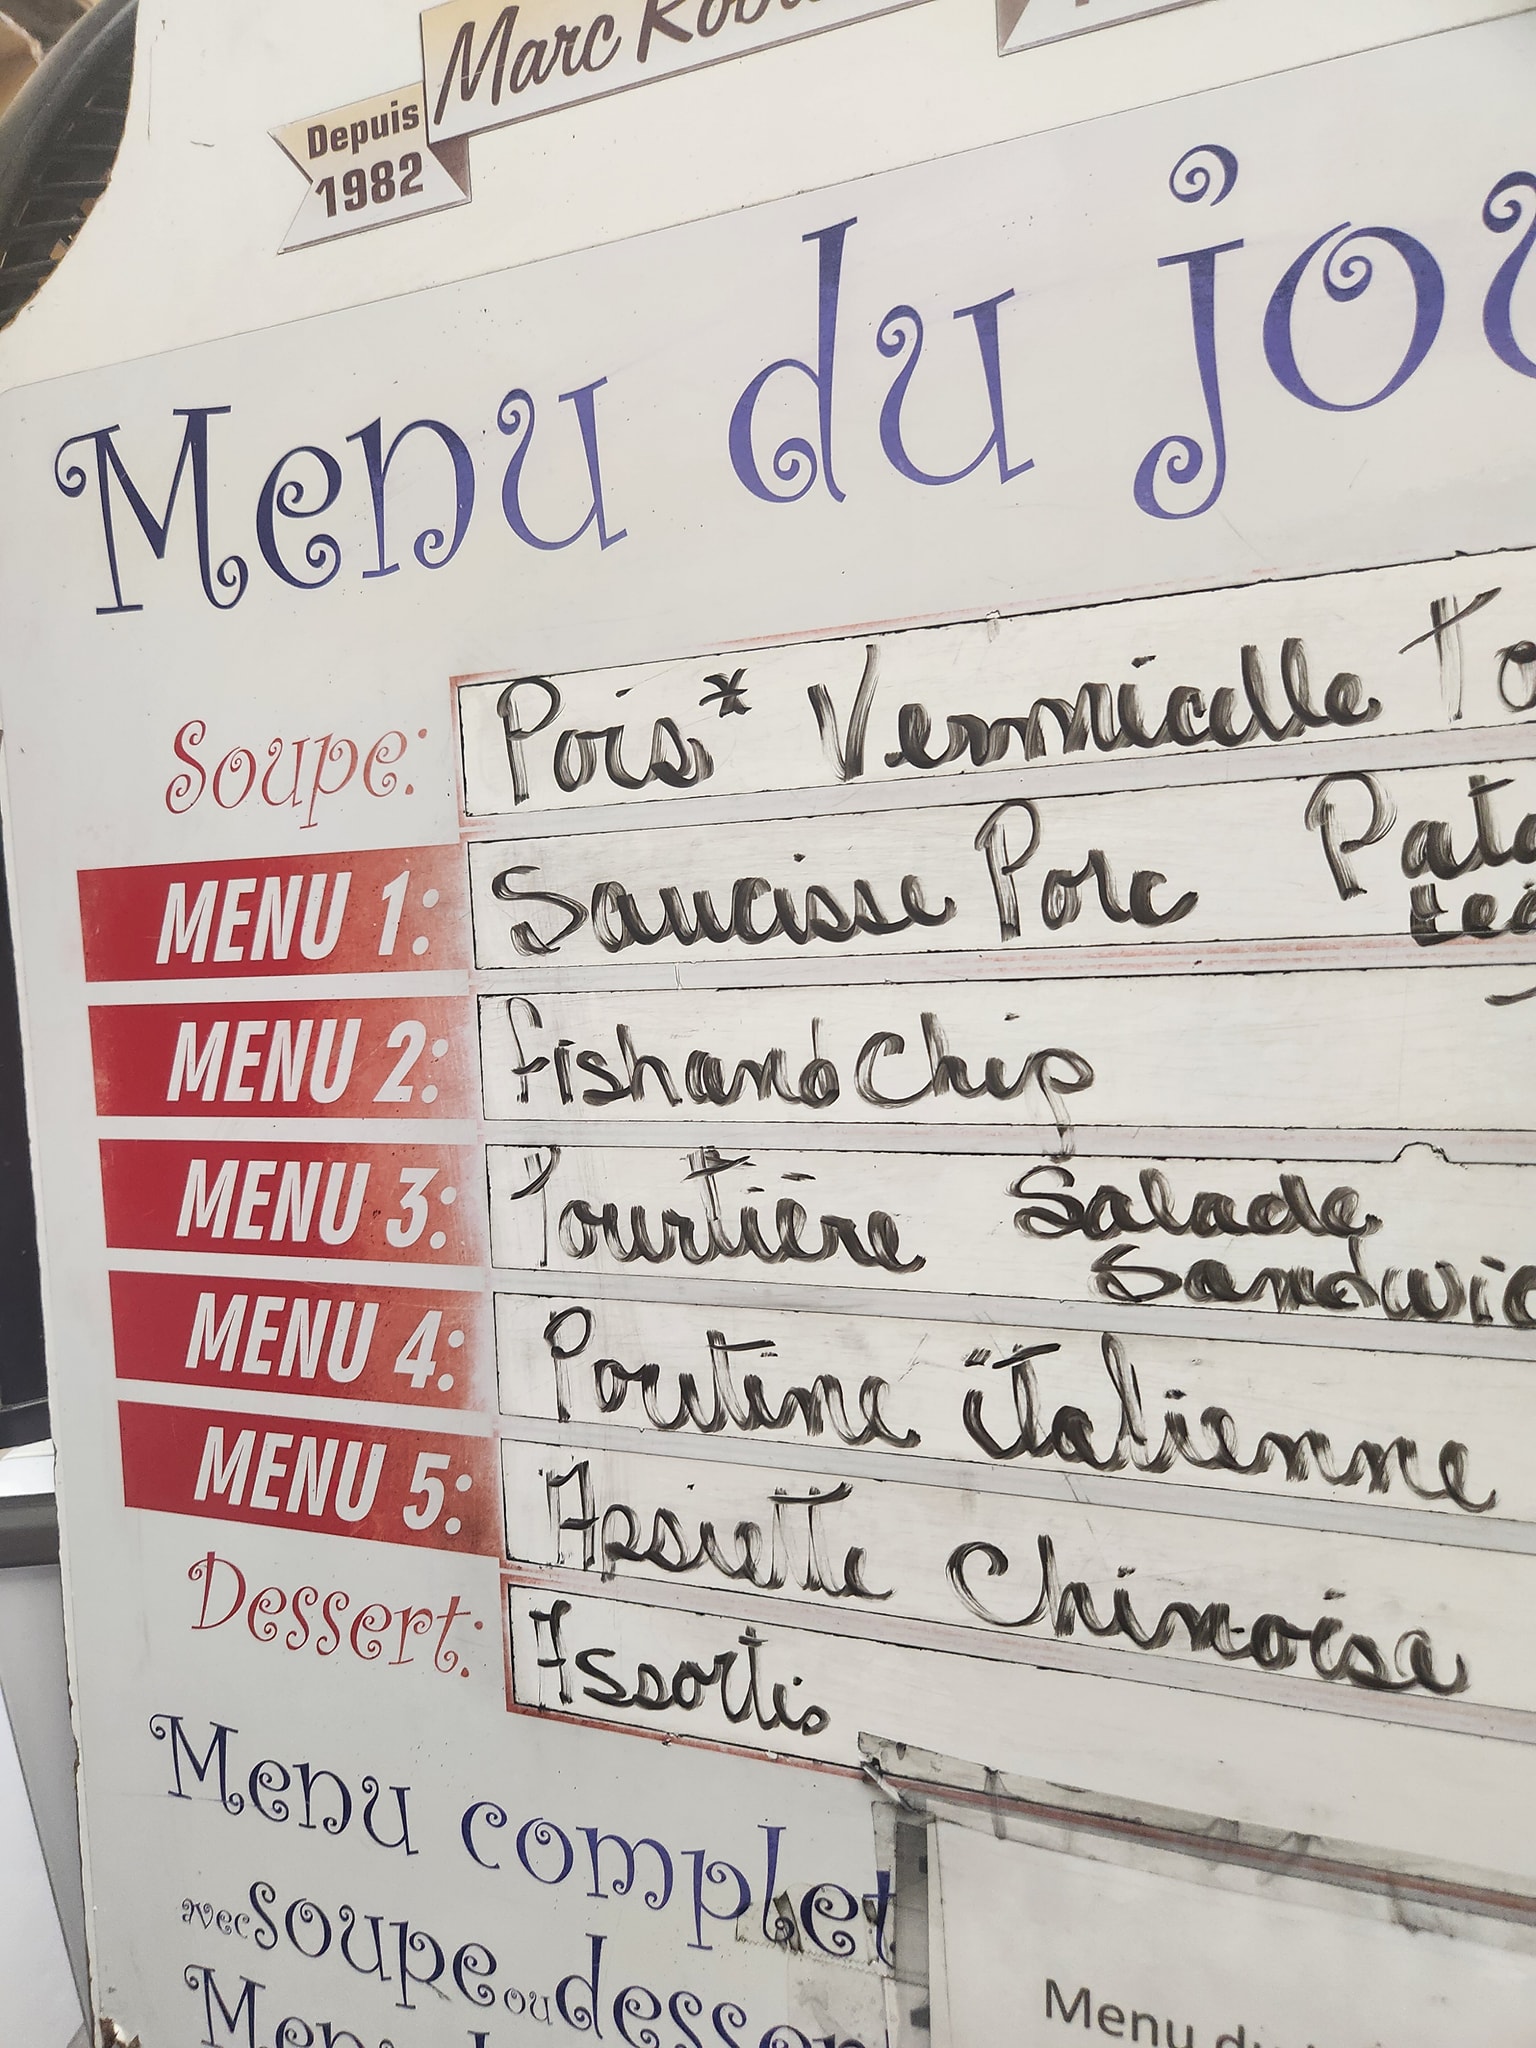 Marc
Depuis
1982
Menu du jou
Soupe: Pois* Vermicelle To
MENU 1: Saucisse Porc Pata
MENU 2: fish and Chip
MENU 3: Tourtière Salade
Sandwic
MENU 4: Poutine italienne
MENU 5: Assiette Chinoise
Dessert: Assortis
Menu complet
avec soupe ou desser
Menu du